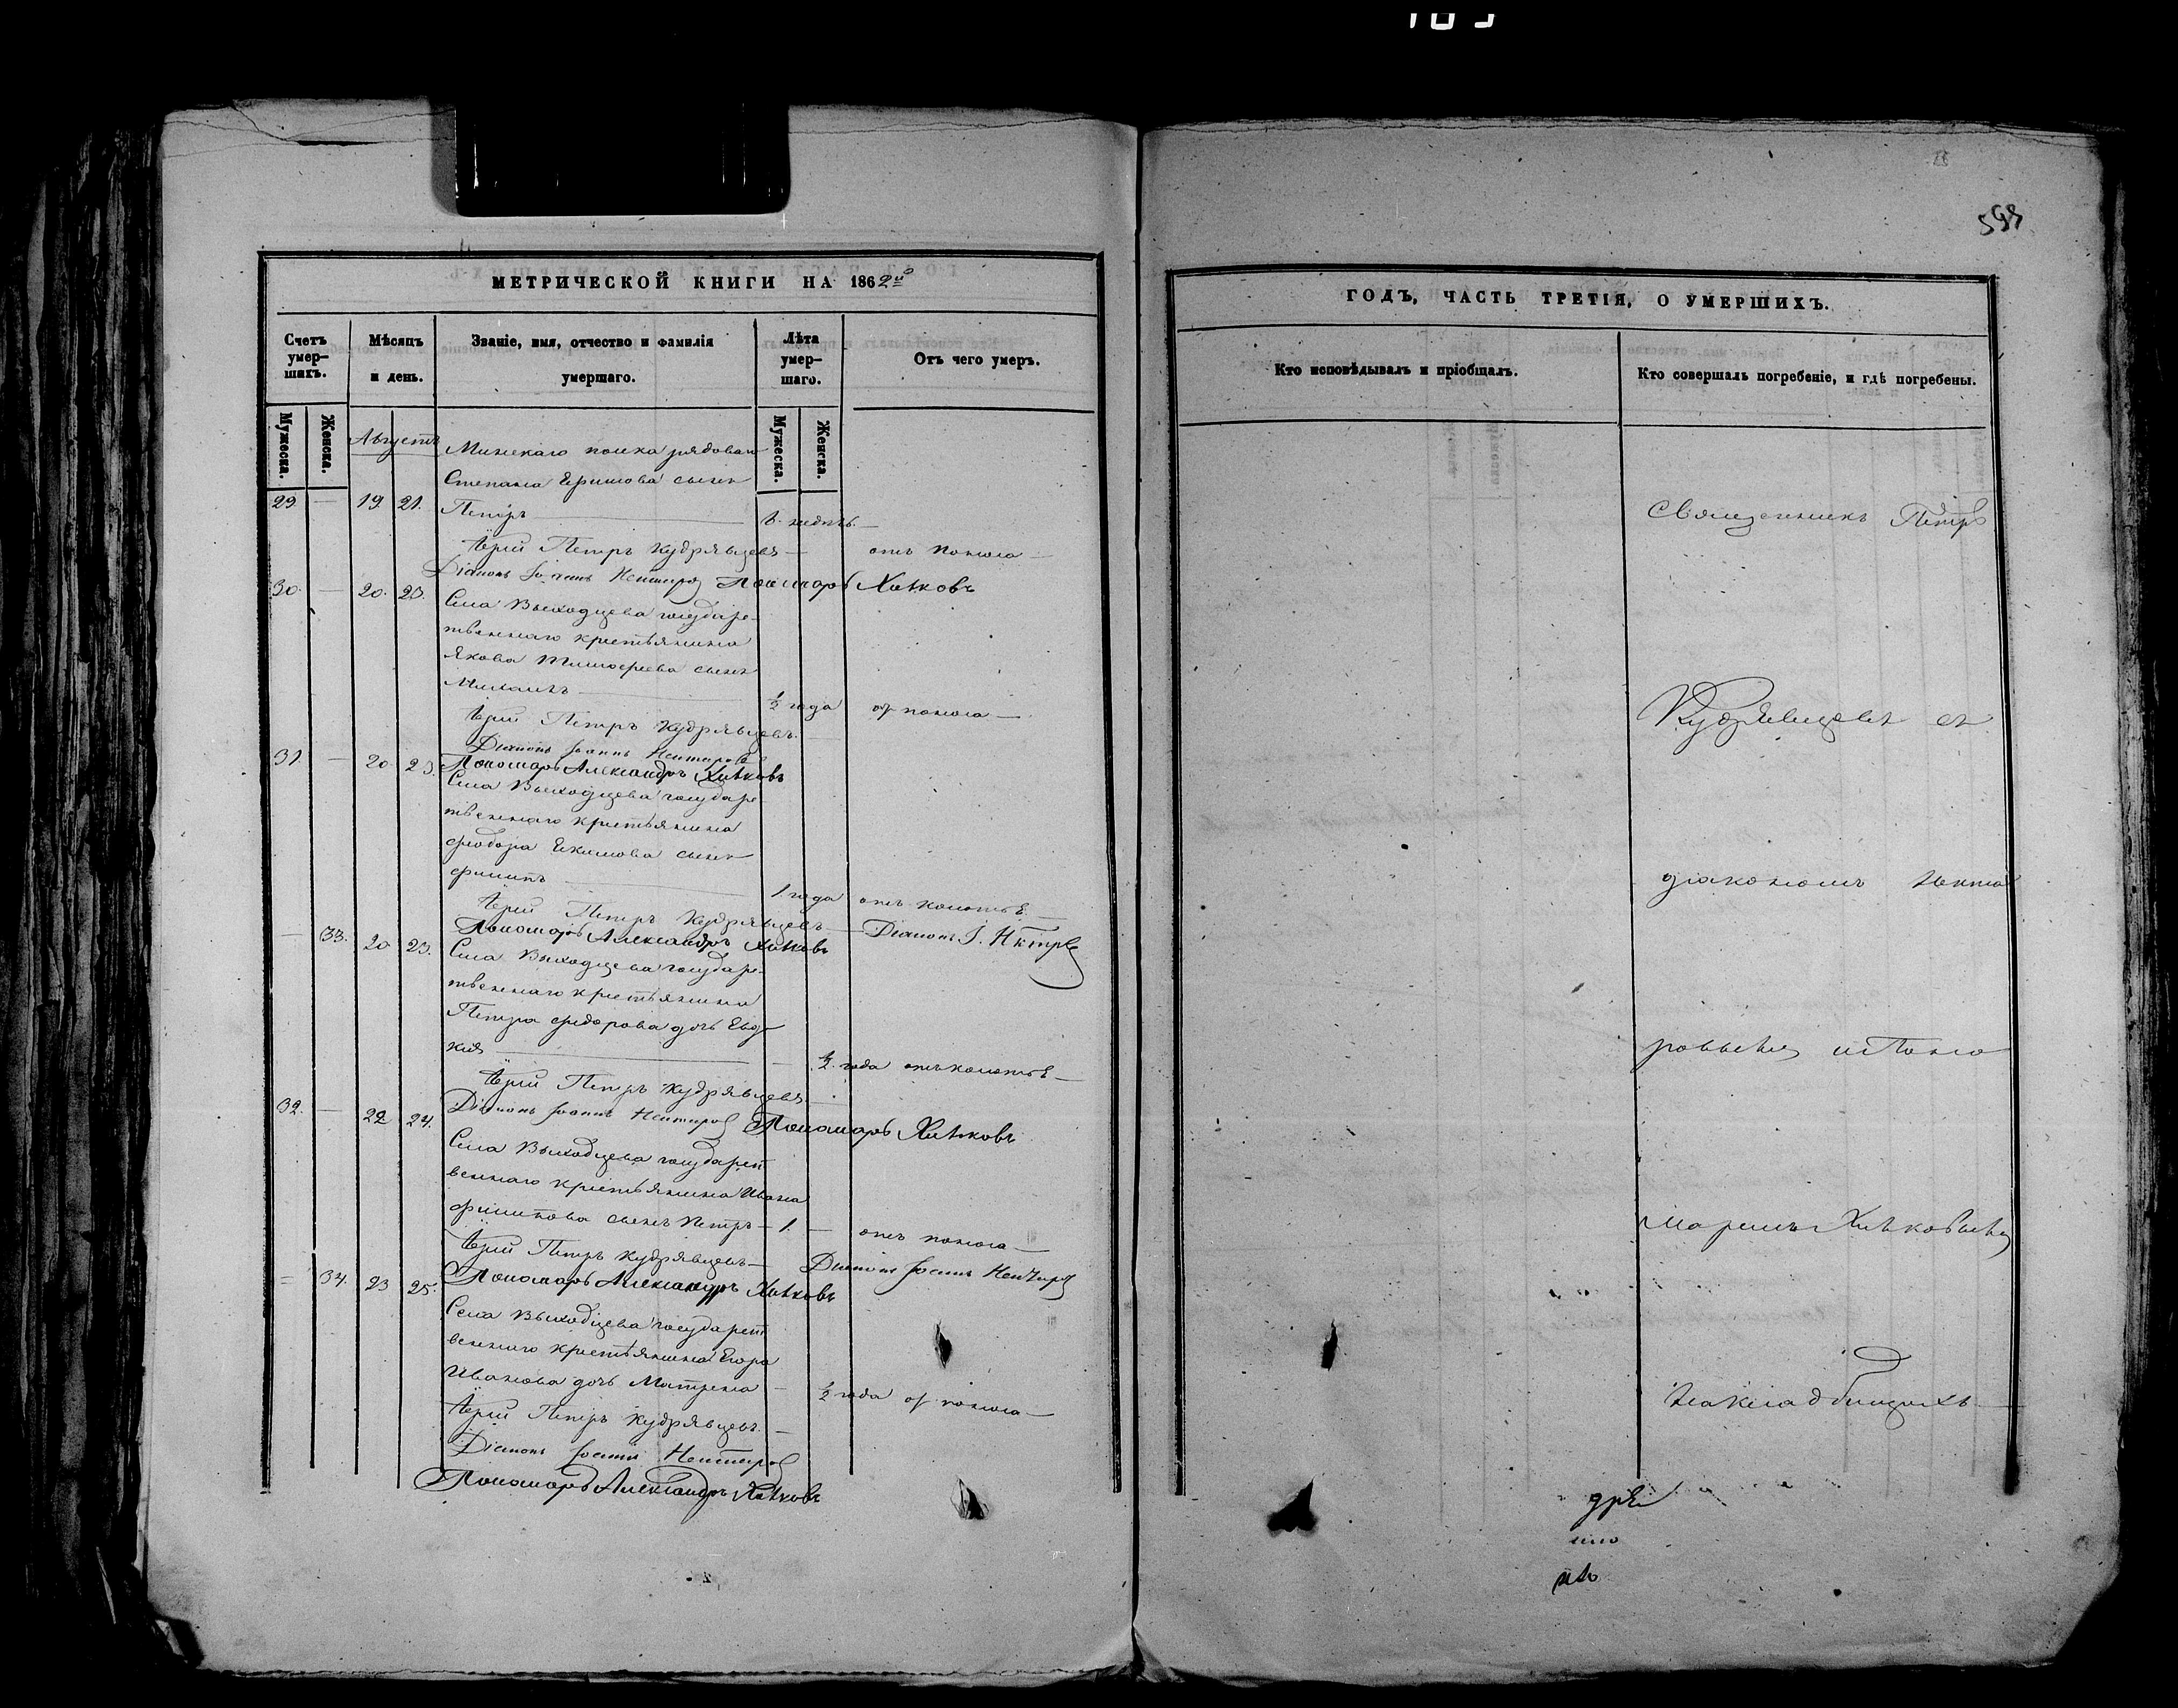 593
МЕТРИЧЕСКОЙ КНИГИ НА 1862й
Счетъ умершихъ.
Мѣсяцъ и день.
Званіе, имя, отчество и фамилія умершаго.
Лѣта умершаго.
Отъ чего умеръ.
Мужеска.
Женска.
Мужеска.
Женска.
Августъ
Минскаго полка рядоваго
Степана Ефимова сынъ
29. — 19. 21. Петръ — недѣль —
Іерей Петръ Кудрявцевъ — отъ поноса —
Діаконъ Іоаннъ Нектаровъ Пономарь Хитковъ
30. — 20. 23.
Села Выходцева государс-
твеннаго крестьянина
Якова Тимофеева сынъ
Михаилъ — ½ года от поноса —
Іерей Петръ Кудрявцевъ.
Діаконъ Іоаннъ Нектаровъ
31 — 20 23. Пономарь Александръ Хитковъ
Села Выходцева государс
твеннаго крестьянина
Феодора Екимова сынъ
Филипъ — 1 года отъ коноты —
Іерей Петръ Кудрявцевъ — Діаконъ І. Нктровъ
Пономарь Александръ Хитковъ
— 33. 20 23. Села Выходцева государс-
твеннаго крестьянина
Петра Федорова дочь Евдо
кия — ½ года
Іерей Петръ Кудрявцевъ
32. — 22 24. Діаконъ Іоаннъ Нектаровъ Пономарь Хитковъ
Села Выходцева государст
веннаго крестьянина Ивана
Филипова сынъ Петръ — 1. — отъ поноса —
Іерей Петръ Кудрявцевъ — Діаконъ Іоаннъ Нектаровъ
Пономарь Александръ Хитковъ
— 34. 23 25.
Села Выходцева государст
веннаго крестьянина Егора
Иванова дочь Матрена — ½ года от поноса —
Іерей Петръ Кудрявцевъ. —
Діаконъ Іоаннъ Нектаровъ
Пономарь Александръ Хитковъ
ГОДЪ, ЧАСТЬ ТРЕТІЯ, О УМЕРШИХЪ.
Кто исповѣдывалъ и пріобщалъ.
Кто совершалъ погребеніе, и гдѣ погребены.
Священникъ Петръ
Кудрявцевъ съ
діакономъ Некта
ровымъ и Поно
маремъ Хитковымъ
на кладбищахъ